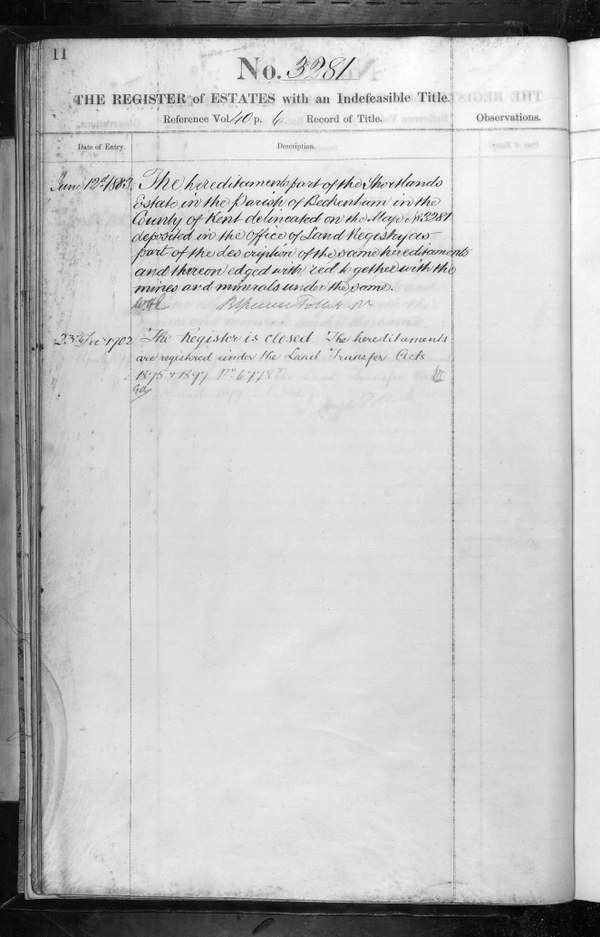 11
No. 3281
THE REGISTER of ESTATES with an Indefeasible Title.
Reference Vol. 40 p. 6 Record of Title.
Observations.
Date of Entry.
Description.
June 12th 1883.
The hereditaments part of the Shortlands
Estate in the Parish of Beckenham in the
County of Kent delineated on the Map No 3281
deposited in the Office of Land Registry as
part of the description of the same hereditaments
and thereon edged with red together with the
mines and minerals under the same.
23rd 1902
The Register is closed The hereditaments
are registered under the Land Transfer Acts
1875 & 1897 No